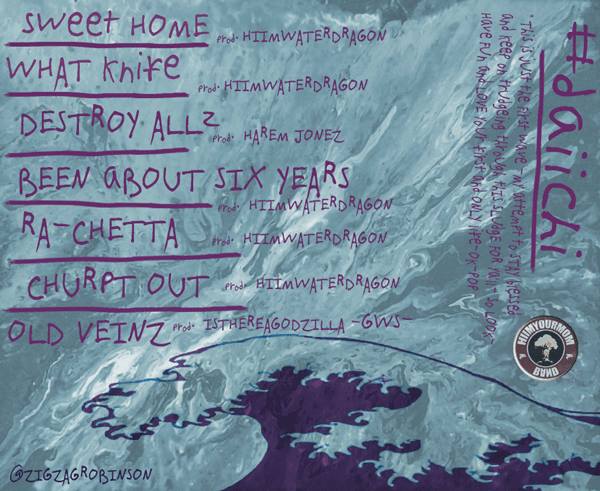 sweet HOME prod. HIIMWATERDRAGON
WHAT Knife prod. HIIMWATERDRAGON
DESTROY ALLZ prod. HAREM JONEZ
BEEN aBOUT SIX YEARS
prod. HIIMWATERDRAGON
RA-CHETTA prod. HIIMWATERDRAGON
CHURPT OUT prod. HIIMWATERDRAGON
OLD VEINZ prod. ISTHEREAGODZILLA -GWS-
#daiichi
*This is just the first wave - my attempt to STAY blessed
and keep on trudging through this sludge FOR
HAVE FUN and LOVE YOUR first and ONLY life-OK-POP
HIIMYOURMOM
BAND
@ZIGZAGROBINSON